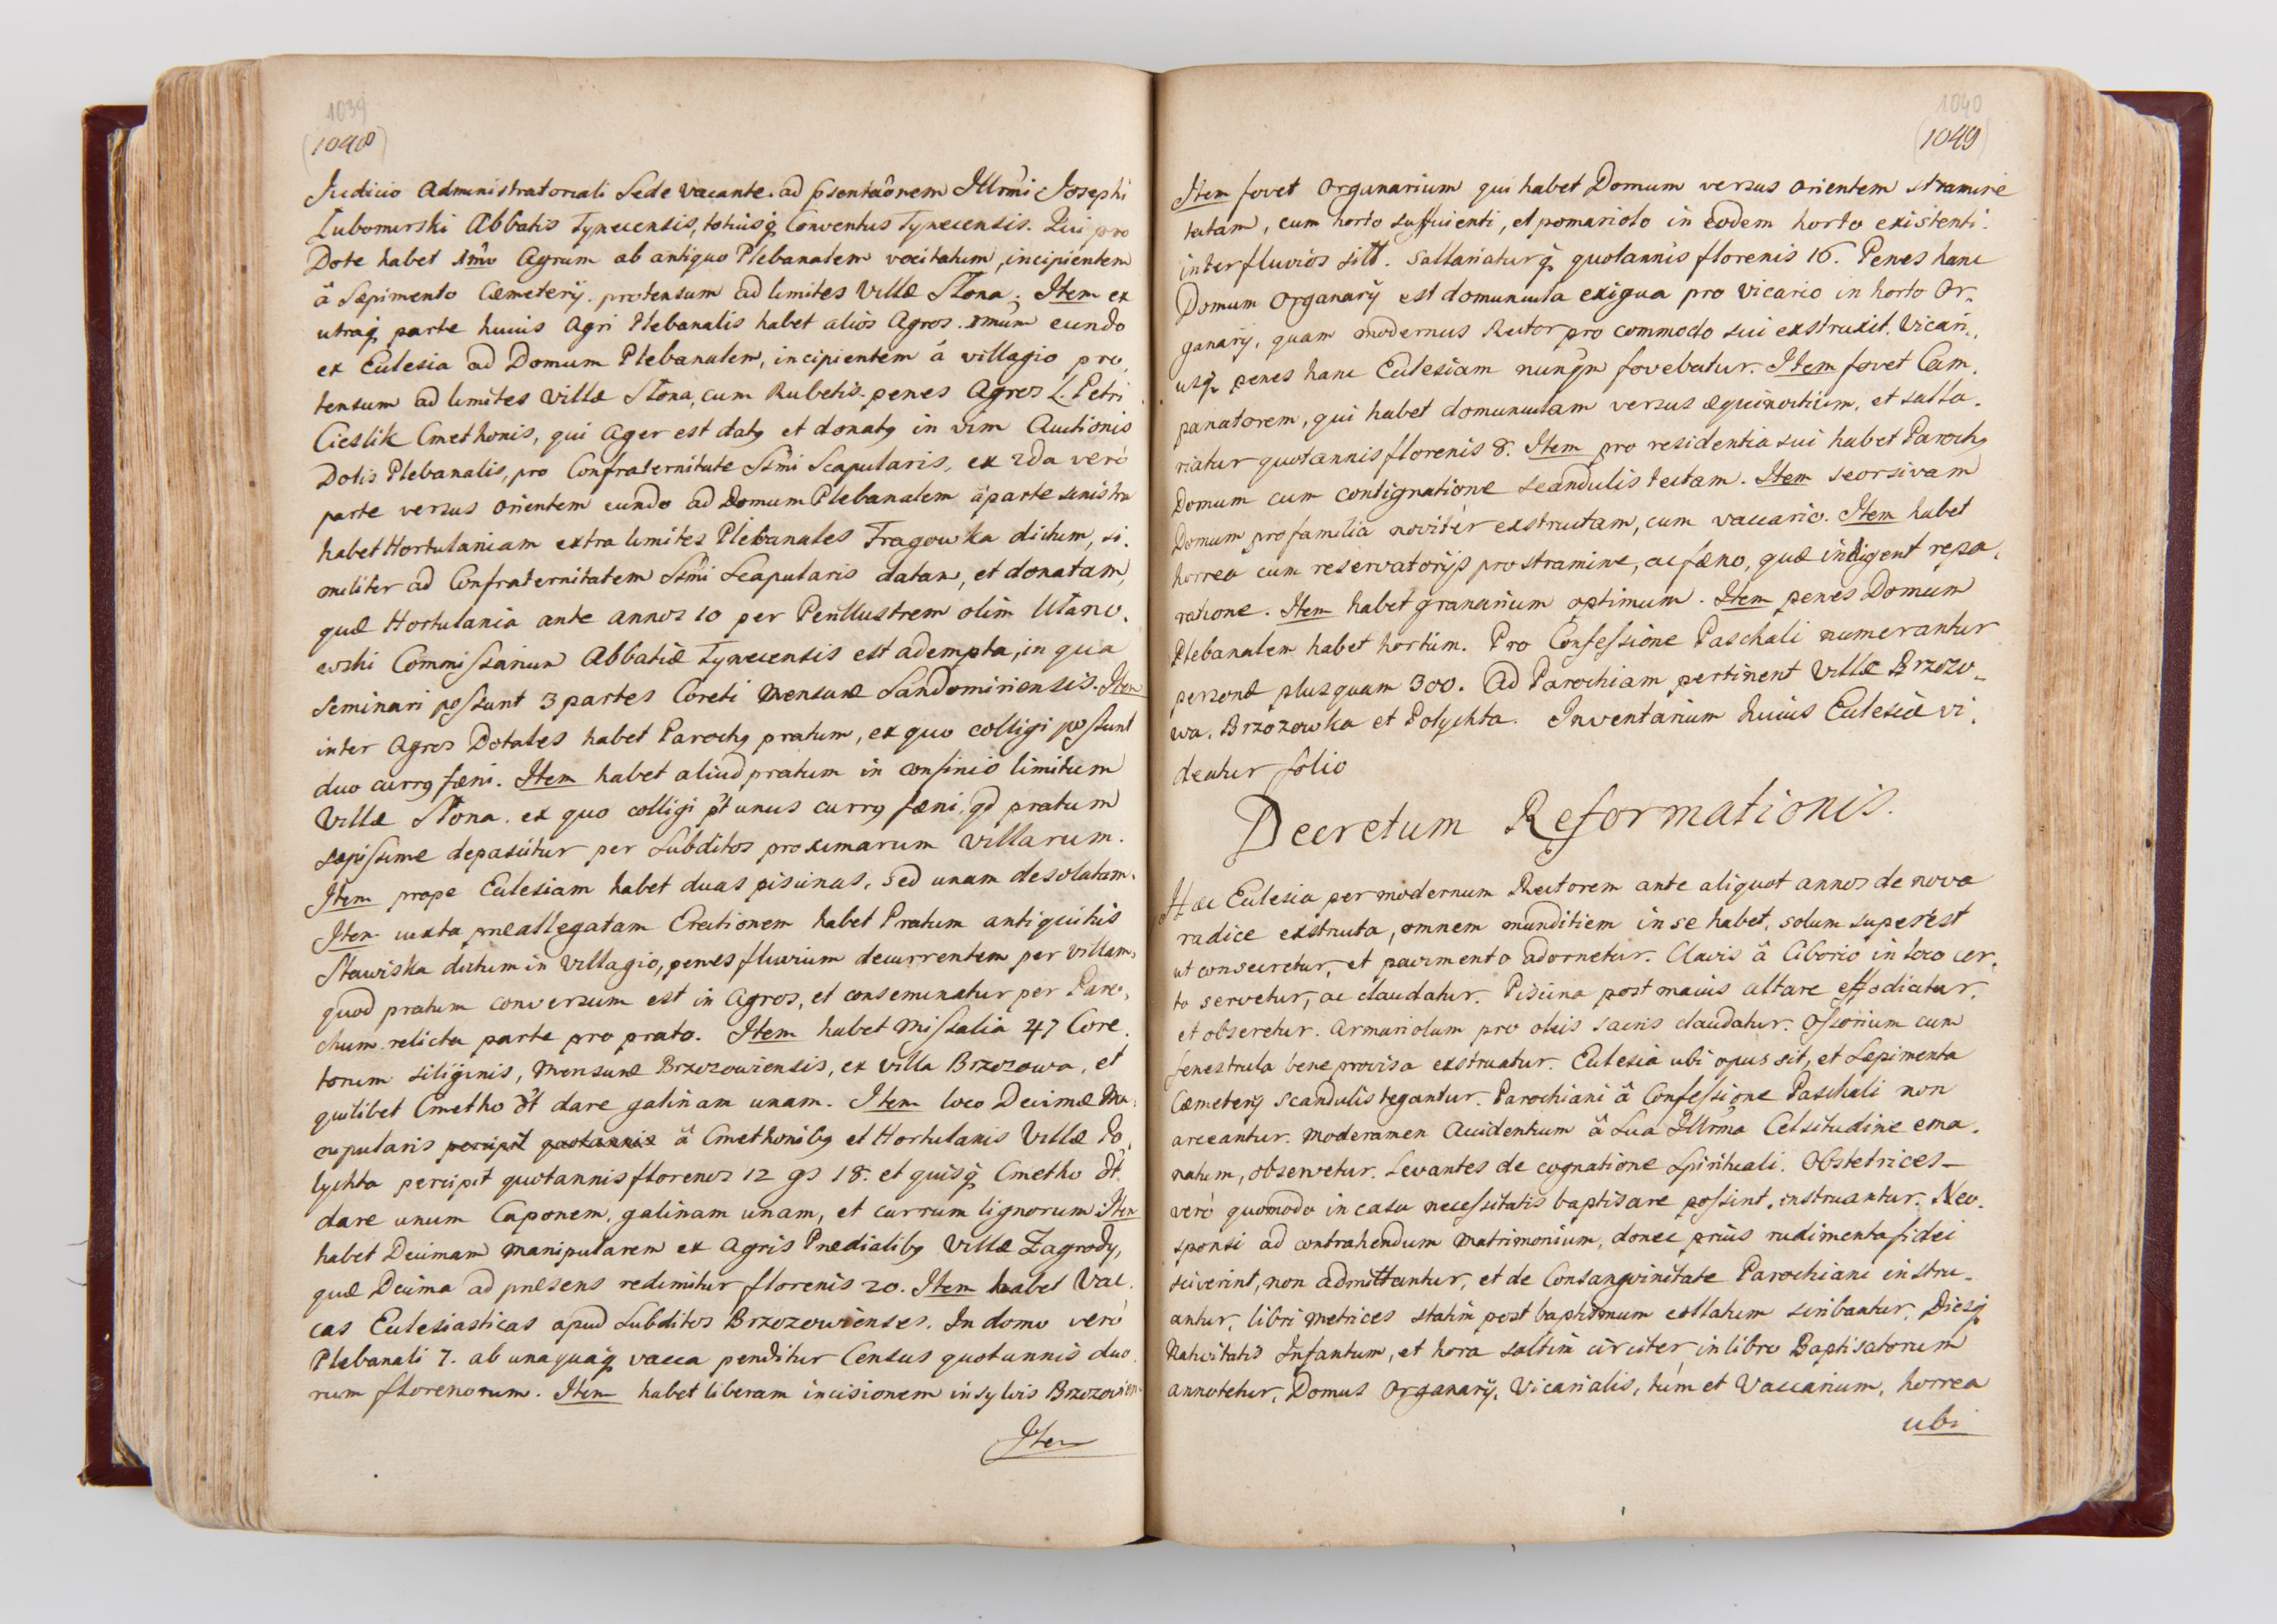 1039
(1048)
Judicio Administratoriali Sede vacante. ad p̃sentaõnem Illr̃mi Josephi
Lubomirski Abbatis Tynecensis, totiusq̃ Conventus Tynecensis. Qui pro
Dote habet 1mo Agrum ab antiquo Plebanalem vocitatum, incipientem
â Sæpimento Cæmeterij. protensum ad limites Villæ Słona. Item ex
utraq̃ parte huius Agri Plebanalis habet alios Agros. 1mum eundo
ex Ecclesia ad Domum Plebanalem, incipientem â villagio pro,
tensum ad limites Villæ Słona, cum Rubetis penes Agros L. Petri
Cieslik Cmethonis, qui Ager est datꝯ et donatꝯ in vim Auctionis
Dotis Plebanalis, pro Confraternitate Ssmi Scapularis, ex 2da verò
parte versus Orientem eundo ad Domum Plebanalem â parte sinistra
habet Hortulaniam extra limites Plebanales Fragowka dictum, si,
militer ad Confraternitatem Ssmi Scapularis datam, et donatam,
quæ Hortulania ante annos 10 per Perillustrem olim Utano,
wski Commissarium Abbatiæ Tynecensis est adempta, in qua
Seminari possunt 3 partes Coreti Mensuræ Sandomiriensis. Item
inter Agros Dotales habet Parochꝯ pratum, ex quo colligi possunt
duo currꝯ fæni. Item habet aliud pratum in confinio limitum
Villæ Słona. ex quo colligi p̃t unus currꝯ fæni, qd pratum
sæpissime depascitur per Subditos proximarum Villarum.
Item prope Ecclesiam habet duas piscinas, sed unam desolatam.
Item iuxta præallegatam Erectionem habet Pratum antiquitus
Stawiska dictum in Villagio, penes fluvium decurrentem per villam,
quod pratum conversum est in Agros, et conseminatur per Paro,
chum relicta parte pro prato. Item habet Missalia 47 Core,
torum siliginis, Mensuræ Brzozowiensis, ex villa Brzozowa, et
quilibet Cmetho d̃t dare galinam unam. Item loco Decimæ Ma,
nipularis percipit quotannis â Cmethonibꝯ et Hortulanis Villæ Po,
lychta percipit quotannis florenos 12 gs 18. et quisq̃ Cmetho d̃t
dare unum Caponem, galinam unam, et currum lignorum. Item
habet Decimam manipularem ex Agris Prædialibꝯ Villæ Zagrody,
quæ Decima ad præsens redimitur florenis 20. Item habet Vac,
cas Ecclesiasticas apud Subditos Brzozowienses. In domo verò
Plebanali 7. ab unaquaq̃ vacca penditur Census quotannis duo,
rum florenorum. Item habet liberam incisionem in sylvis Brzozowien
Item
1040
(1049)
Item fovet Organarium qui habet Domum versus Orientem stramine
tectam, cum horto sufficienti, et pomariolo in eodem horto existenti.
inter fluvios sitt. Sallariaturq̃ quotannis florenis 16. Penes hanc
Domum Organarij est domuncula exigua pro Vicario in horto Or,
ganarij, quam modernus Rector pro commodo sui exstruxit, Vicari,
usq̃ penes hanc Ecclesiam nunq̃m fovebatur. Item fovet Cam,
panatorem, qui habet domunculam versus æquinoctium, et salla,
riatur quotannis florenis 8. Item pro residentia sui habet Parochꝯ
Domum cum contignatione scandulis tectam. Item seorsivam
Domum pro familia novitèr exstructam, cum vaccario. Item habet
horrea cum reservatorijs pro stramine, ac fæno, quæ indigent repa,
ratione. Item habet granarium optimum. Item penes Domum
Plebanalem habet hortum. Pro Confessione Paschali numerantur
personæ plusquam 300. Ad Parochiam pertinent Villæ Brzozo,
wa. Brzozowka et Polychta. Inventarium huius Ecclesiæ vi,
deatur folio
Decretum Reformationis.
Hæc Ecclesia per modernum Rectorem ante aliquot annos de nova
radice exstructa, omnem munditiem in se habet, solum superest
ut consecretur, et pavimento adornetur. Clavis â Ciborio in loco cer,
to servetur, ac claudatur. Piscina post maius altare effodiatur,
et obseretur. Armariolum pro oleis sacris claudatur. Ossorium cum
fenestrula bene provisa exstruatur. Ecclesia ubi opus sit, et Sæpimenta
Cæmeterij scandulis tegantur. Parochiani â Confessione Paschali non
arceantur. Moderamen Accidentium â Sua Illr̃ma Celsitudine ema,
natum, observetur. Levantes de cognatione Spirituali. Obstetrices
verò quomodo in casu necessitatis baptisare possint, instruantur. Neo,
sponsi ad contrahendum Matrimonium, donec prius rudimenta fidei
sciverint, non admittantur, et de Consangvinitate Parochiani instru,
antur, libri Metrices statim post baptismum collatum scribantur, Diesq̃
Nativitatis Infantum, et hora saltim circiter, in libro Baptisatorum
annotetur, Domus Organarij, Vicarialis, tum et Vaccarium, horrea
ubi